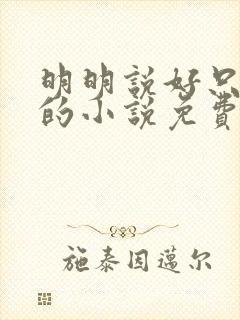 明明説好只
的小説免費
施泰因邁尔